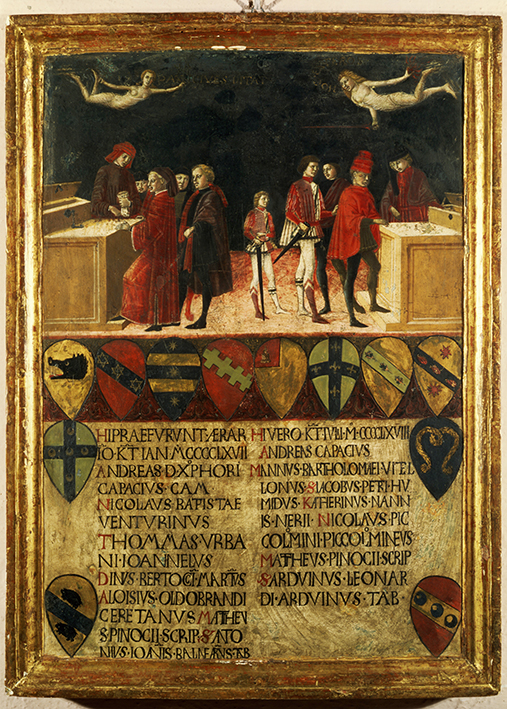 HI PRAEFVRVNT AERAR
IO KT IAN M CCCCLXVII
ANDREAS D XPHORI
CAPACIVS CAM
NICOLAVS BATISTAE
VENTVRINVS
THOMMAS VRBA
NI IOANNELVS
DINVS BERTOCI MARTIVS
ALOISIVS OLDOBRANDI
CERETANVS MATHEV
S PINOCII SCRIP S ATO
NIVS IOANIS BALNEARIVS TAB
HI VERO KT IVLI M CCCCLXVIII
ANDREAS CAPACIVS
MANNVS BARTHOLOMAEI VITEL
LONVS S IACOBVS PETRI HV
MIDVS KATHERINVS NANN
IS NERII NICOLAVS PIC
COLMINI PICCOLMINEVS
MATHEVS PINOCII SCRIP
S ARDVINVS LEONAR
DI ARDVINVS TAB